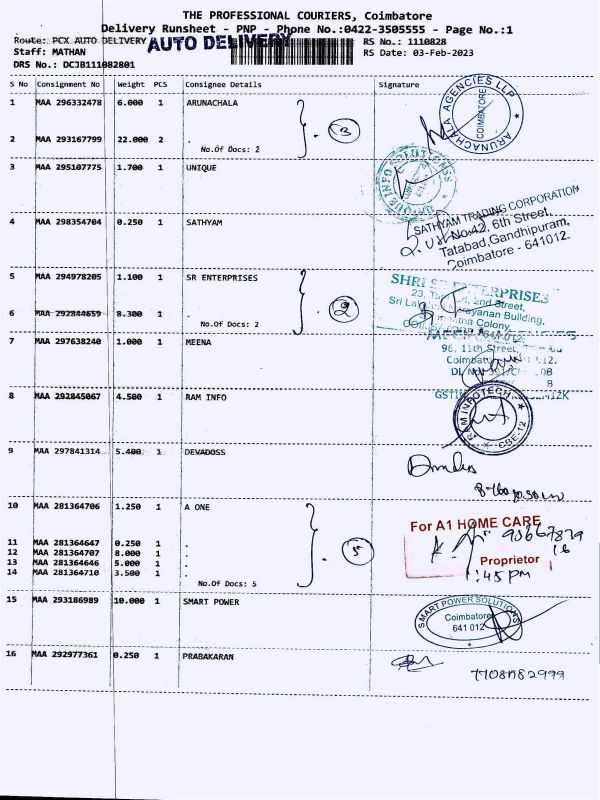 THE PROFESSIONAL COURIERS, Coimbatore
Delivery Runsheet - PNP - Phone No.:0422-3505555 - Page No.:1
Route: PCX AUTO DELIVERY AUTO DELIVERY RS No.: 1110828
Staff: MATHAN RS Date: 03-Feb-2023
DRS No.: DCJB111082801
S No Consignment No Weight PCS Consignee Details Signature
1 MAA 296332478 6.000 1 ARUNACHALA
ARUNACHALA AGENCIES LLP COIMBATORE
2 MAA 293167799 22.000 2 .
No.Of Docs: 2
3
3 MAA 295107775 1.700 1 UNIQUE
4 MAA 298354704 0.250 1 SATHYAM
SATHYAM TRADING CORPORATION
No:42, 6th Street,
Tatabad,Gandhipuram,
Coimbatore - 641012
5 MAA 294978205 1.100 1 SR ENTERPRISES
6 MAA 292844659 8.300 1 .
No.Of Docs: 2
2
23, 2nd Street,
Building,
Colony,
7 MAA 297638240 1.000 1 MEENA
96, 11th Street,
8 MAA 292845067 4.500 1 RAM INFO
CBE-12
9 MAA 297841314 5.400 1 DEVADOSS
10 MAA 281364706 1.250 1 A ONE
For A1 HOME CARE
11 MAA 281364647 0.250 1 .
12 MAA 281364707 8.000 1 .
13 MAA 281364646 5.000 1 .
14 MAA 281364710 3.500 1 .
No.Of Docs: 5
5
Proprietor
1:45 PM
15 MAA 293186989 10.000 1 SMART POWER
SMART POWER SOLUTIONS
Coimbatore
641 012
16 MAA 292977361 0.250 1 PRABAKARAN